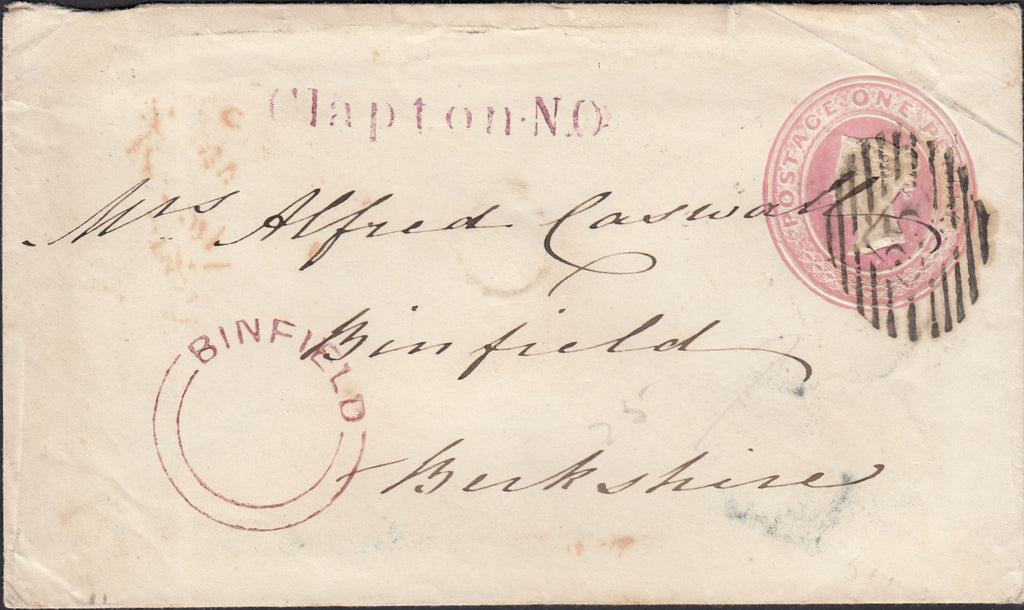 Clapton·N.O
POSTAGE ONE PE
Mrs Alfred Caswall
Binfield
BINFIELD
Berkshire